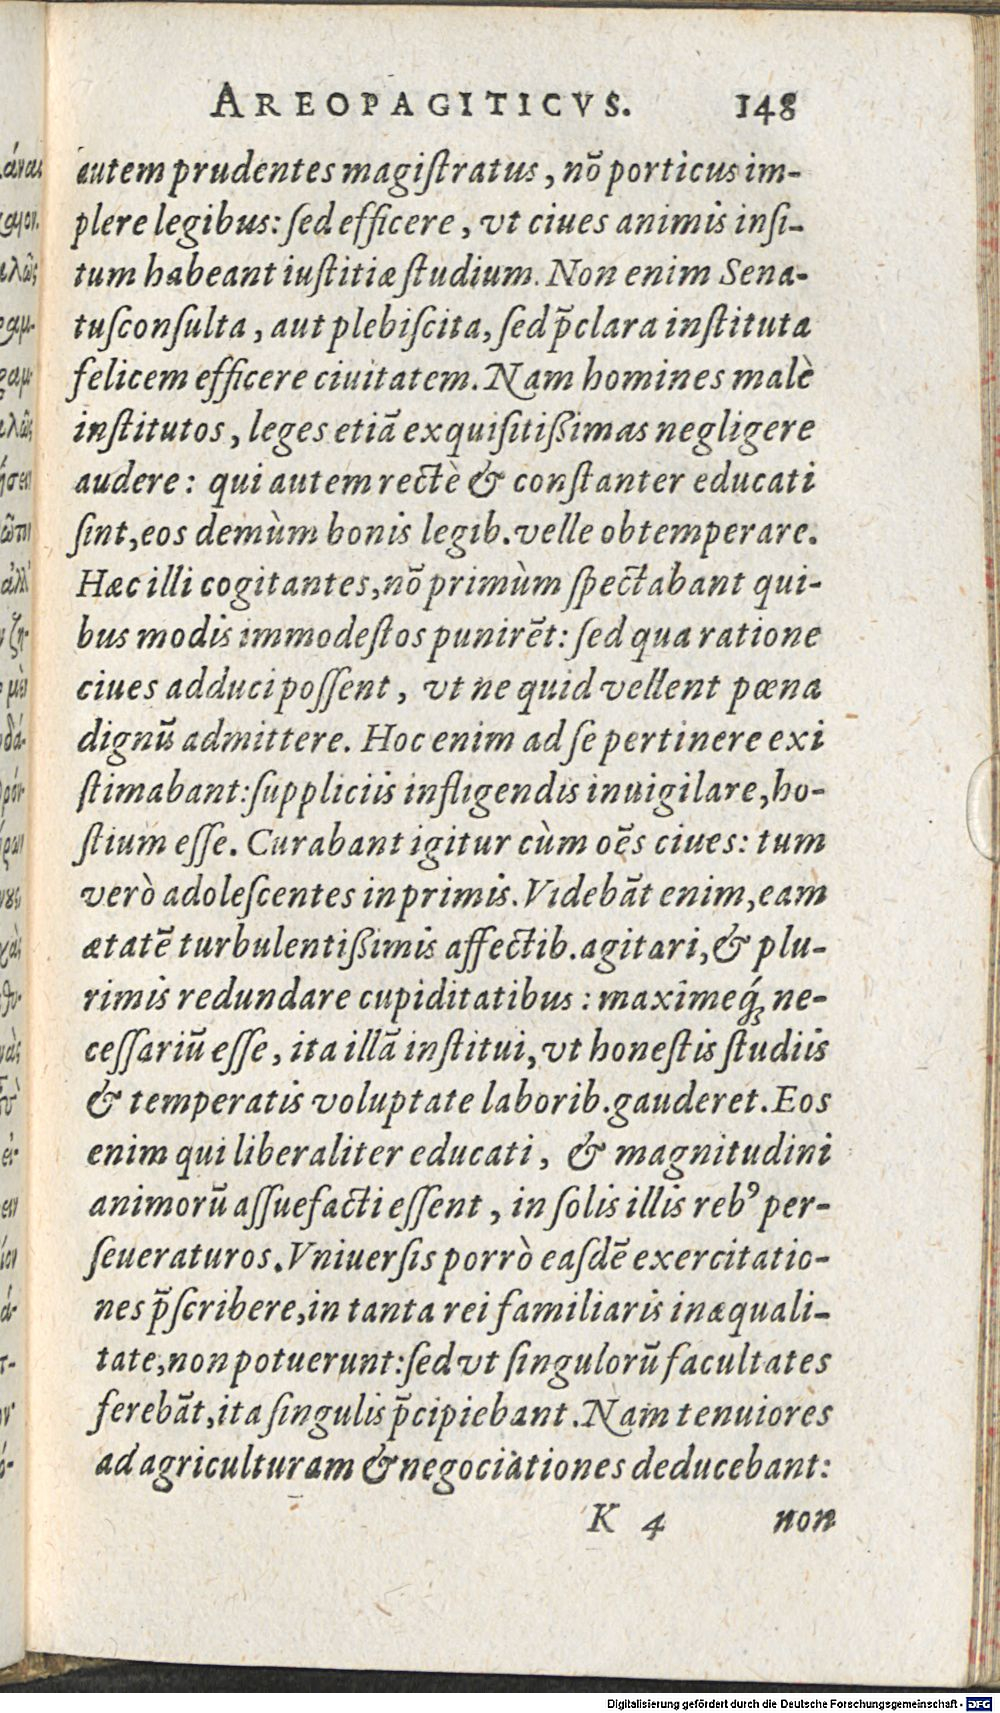 AREOPAGITICVS. 148
autem prudentes magiſtratus, nō porticus im-
plere legibus: ſed efficere, vt ciues animis inſi-
tum habeant iuſtitiæ ſtudium. Non enim Sena-
tuſconſulta, aut plebiſcita, ſed p̄clara inſtituta
felicem efficere ciuitatem. Nam homines malè
inſtitutos, leges etiā exquiſitißimas negligere
audere: qui autem rectè & conſtanter educati
ſint, eos demùm bonis legib. velle obtemperare.
Hæc illi cogitantes, nō primùm ſpectabant qui-
bus modis immodeſtos punirēt: ſed qua ratione
ciues adduci poſſent, vt ne quid vellent pœna
dignū admittere. Hoc enim ad ſe pertinere exi
ſtimabant: ſuppliciis infligendis inuigilare, ho-
ſtium eſſe. Curabant igitur cùm oēs ciues: tum
verò adoleſcentes inprimis. Videbāt enim, eam
ætatē turbulentißimis affectib. agitari, & plu-
rimis redundare cupiditatibus: maximeq́ꝫ ne-
ceſſariū eſſe, ita illā inſtitui, vt honeſtis ſtudiis
& temperatis voluptate laborib. gauderet. Eos
enim qui liberaliter educati, & magnitudini
animorū aſſuefacti eſſent, in ſolis illis rebꝰ per-
ſeueraturos. Vniuerſis porrò eaſdē exercitatio-
nes p̄ſcribere, in tanta rei familiaris inæquali-
tate, non potuerunt: ſed vt ſingulorū facultates
ferebāt, ita ſingulis p̄cipiebant. Nam tenuiores
ad agriculturam & negociationes deducebant:
K 4 non
Digitalisierung gefördert durch die Deutsche Forschungsgemeinschaft - DFG